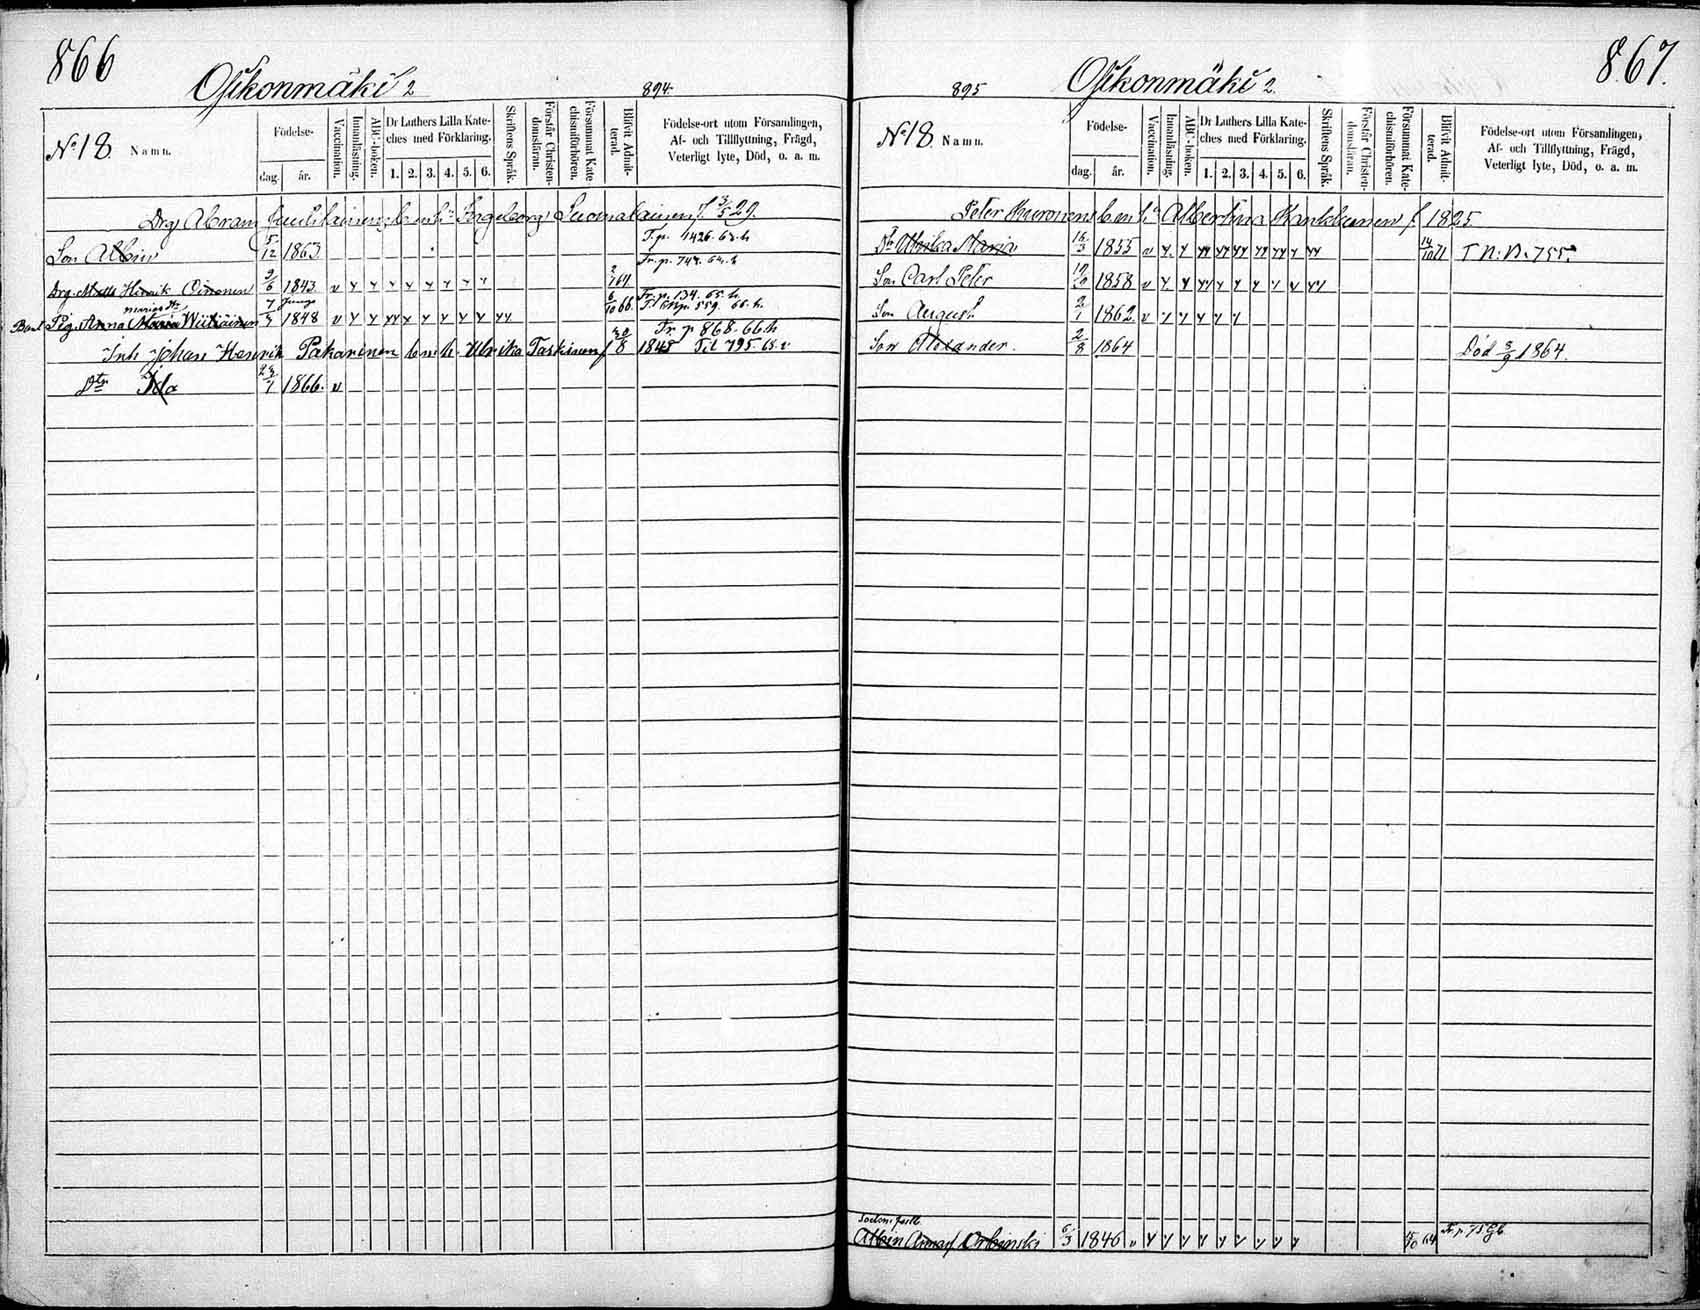 866
Oľikonmäki 2
894
N:o 18. Namn.
Födelse-
dag.
år.
Vaccination.
Innanläsning.
ABC-boken.
Dr Luthers Lilla Kate-
ches med Förklaring.
1. 2. 3. 4. 5. 6.
Skriftens Språk.
Förstår Christen-
domsläran.
Försummat Kate-
chismiförhören.
Blifvit Admit-
terad.
Födelse-ort utom Församlingen,
Af- och Tillflyttning, Frägd,
Veterligt lyte, Död, o. a. m.
Drg Abram h:u Ingeborg Suomalainen f. 3/5 29.
Son Albin 5/12 1863 T.p. 1426. 63. h
Fr. p. 748. 64. h
Drg. Matts Henrik Oinonen 2/6 1843 v y y y y y y y y 64
Fr. p. 134. 65. h.
Pig. Anna Maria Wiikäinen 7/3 1848 v y y yy y y y y yy yy 6/10 66 Til p. 559. 66. h.
Fr p 868. 66. h
Inh Johan Henrik Pakarinen h. m. h. Ulrika Taskinen f 30/8 1845 Til 795
Dtr Ida 23/1 1866. v
895
Oľikonmäki 2.
867.
N:o 18. Namn.
Födelse-
dag.
år.
Vaccination.
Innanläsning.
ABC-boken.
Dr Luthers Lilla Kate-
ches med Förklaring.
1. 2. 3. 4. 5. 6.
Skriftens Språk.
Förstår Christen-
domsläran.
Försummat Kate-
chismiförhören.
Blifvit Admit-
terad.
Födelse-ort utom Församlingen,
Af- och Tillflyttning, Frägd,
Veterligt lyte, Död, o. a. m.
Peter Albertina Karkkainen f 1825.
Dr Ulrika Maria 16/3 1855 v y y yy yy yy yy yy y yy 14/10 71 T N:o 755.
Son Carl Peter 19/10 1858 v y y yy y y y y y yy
Son August 2/1 1862 v y y y y y
Son Alexander. 2/8 1864 Död 3/9 1864.
Albin Orbinski 6/3 1846 v y y y y y y y y y 64 Fr. p. 75